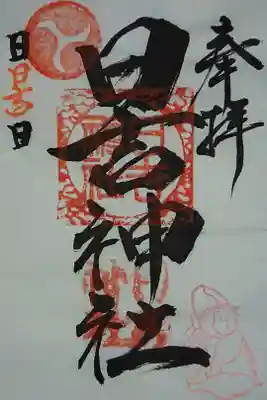 奉拝
日吉神社
日日吉日